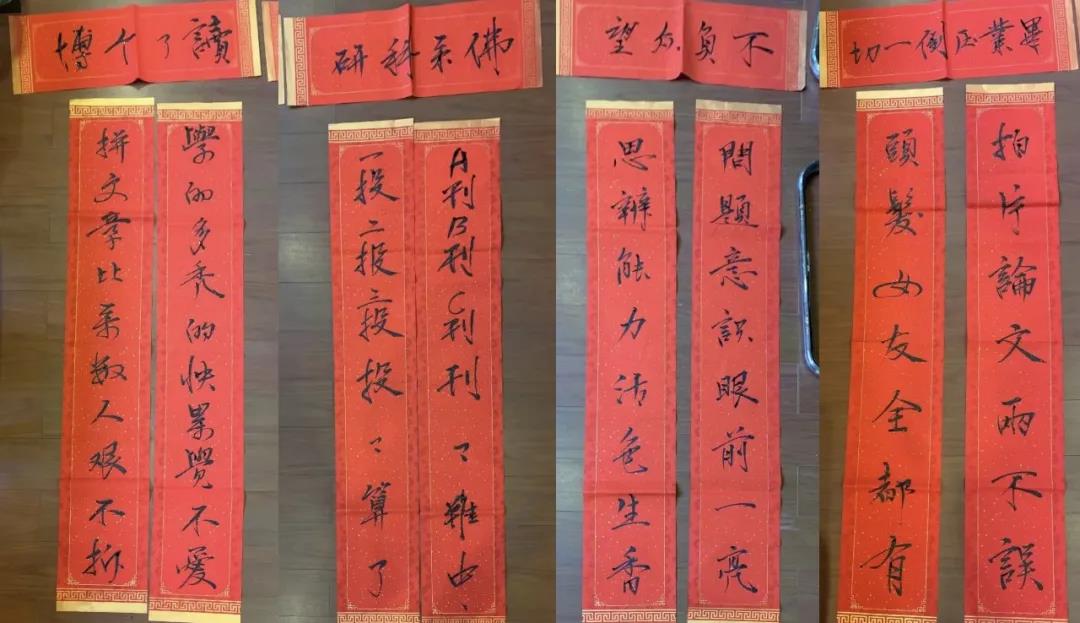 讀了个博
學的多禿的快累覺不愛
拼文章比菜数人艰不拆
佛系科研
A刊B刊C刊刊〻難中
一投二投三投投〻算了
不負众望
問題意識眼前一亮
思辨能力活色生香
畢業压倒一切
拍片論文兩不誤
頭髮女友全都有